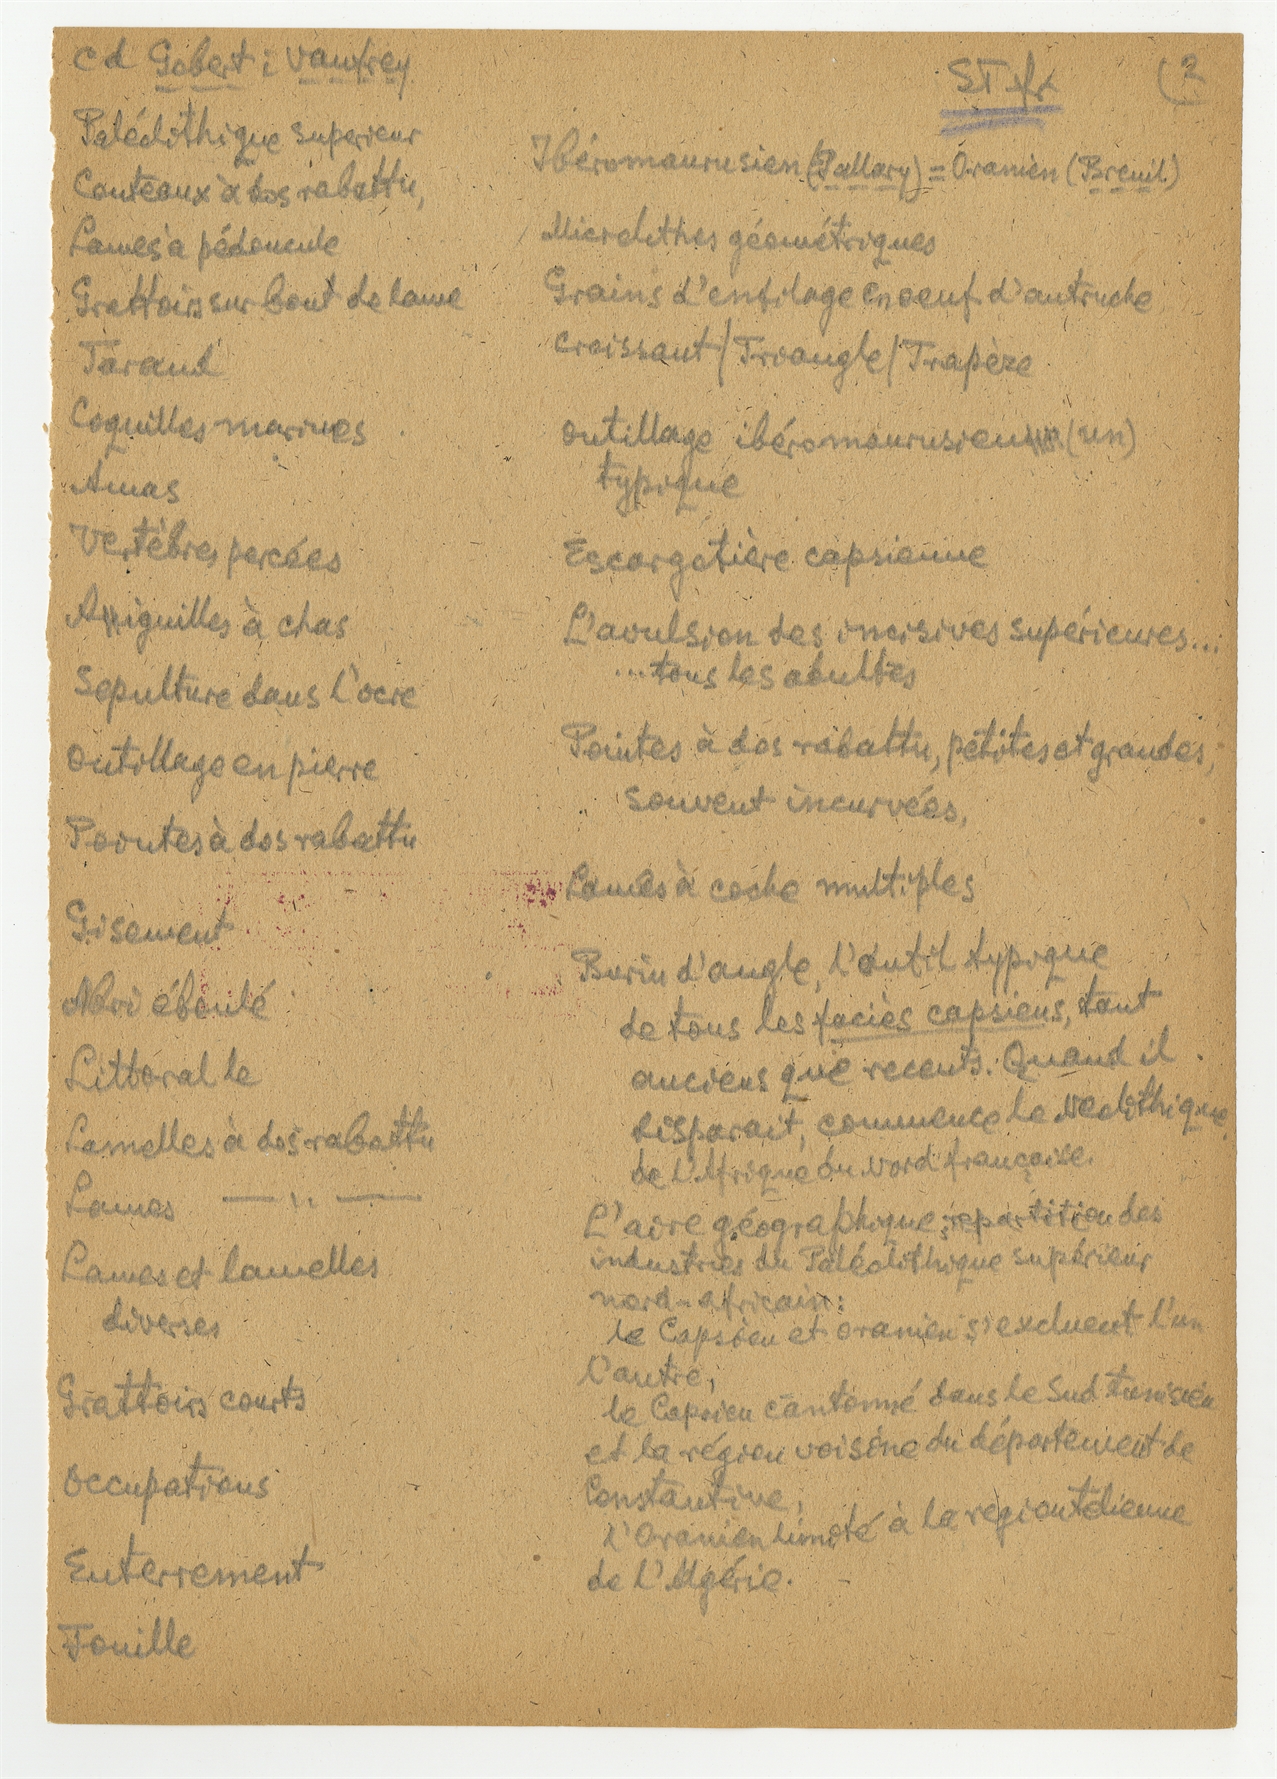 cd Gobert i Vaufrey
ST fr
(2
Paléolithique superieur
Couteaux à dos rabattu,
Lames à pédoncule
Grattoirs sur bout de lame
Taraud
Coquilles marines
Amas
Vertèbres percées
Aiguilles à chas
Sepulture dans l'ocre
Outillage en pierre
Pointes à dos rabattu
Gisement
Abri éboulé
Littoral le
Lamelles à dos rabattu
Lames — " —
Lames et lamelles
diverses
Grattoirs courts
Occupations
Enterrement
Fouille
Ibéromaurusien (Pallary) = Oranien (Breuil)
Microlithes géométriques
Grains d'enfilage en oeuf d'autruche
Croissant/Troangle/Trapèze
Outillage ibéromaurusien (un)
typique
Escargotière capsienne
L'avulsion des incisives supérieures...
...tous les adultes
Pointes à dos rabattu, petites et grandes,
souvent incurvées,
Lames à coche multiples
Burin d'angle, l'outil typique
de tous les faciès capsiens, tant
anciens que recents. Quand il
disparait, commence le Neolithique
de l'Afrique du Nord française.
L'aire géographique; repartition des
industries du Paléolithique supérieur
nord-africain:
le Capsien et Oranien s'excluent l'un
l'autre,
le Capsien cantonné dans le Sud tunisien
et la région voisine du département de
Constantine,
l'Oranien limité à la region tellienne
de l'Algérie.